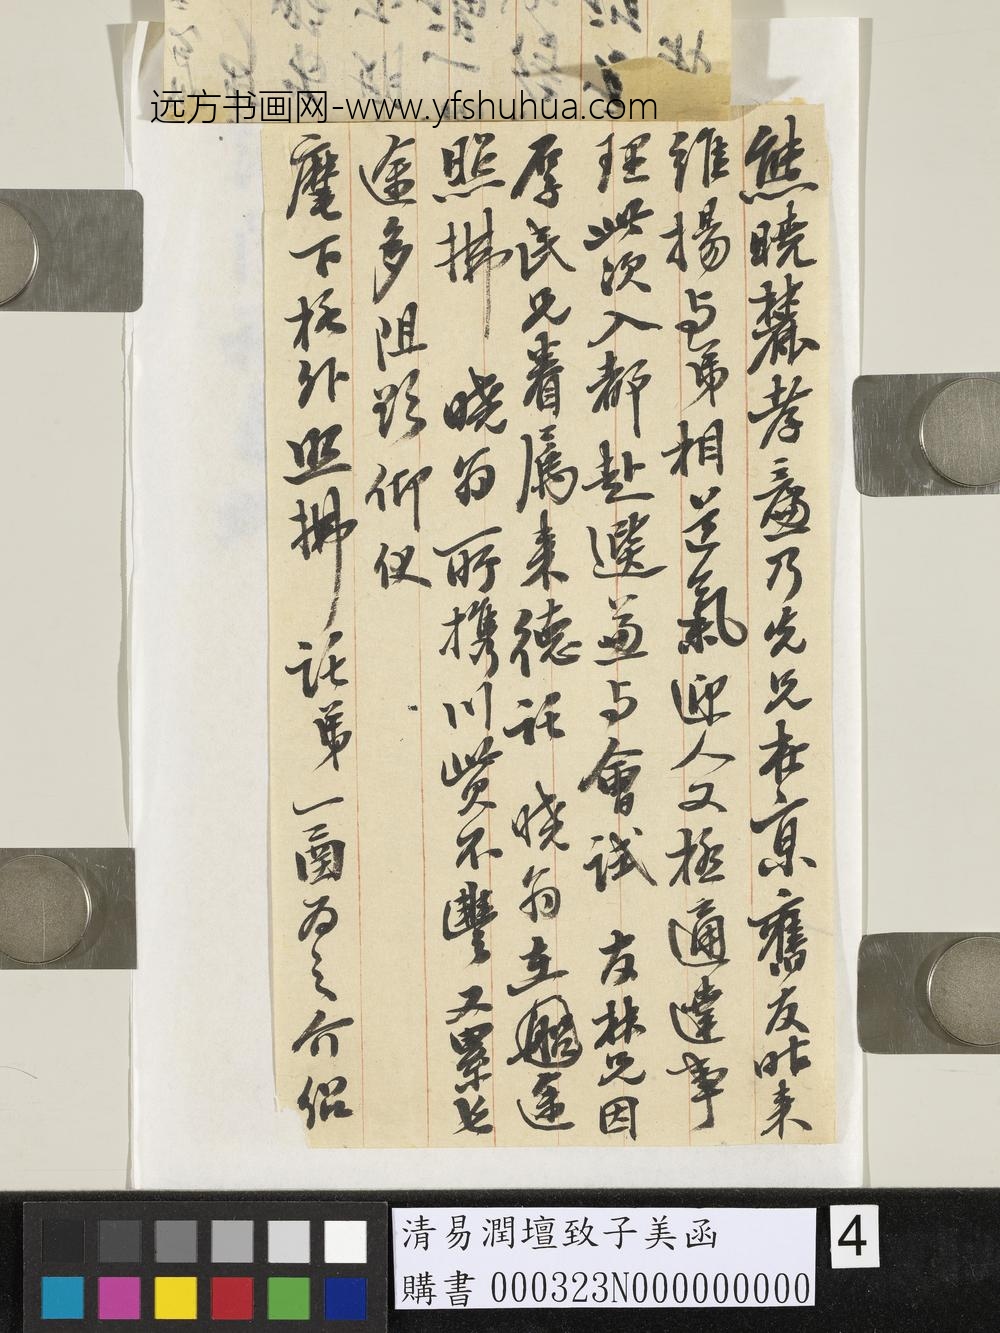 远方书画网-www.yfshuhua.com
熊曉麓孝廉乃先兄在京舊友昨来
維揚与弟相道氣迎人又極通達事
理此次入都赴選並与會試 友林兄因
厚民兄眷屬来德託 曉翁在船途
照拂 曉翁所携川貲不豐又累长
途多阻欲仰仗
麾下格外照拂託弟一函为之介绍
清易潤壇致子美函
購書 000323N000000000
4